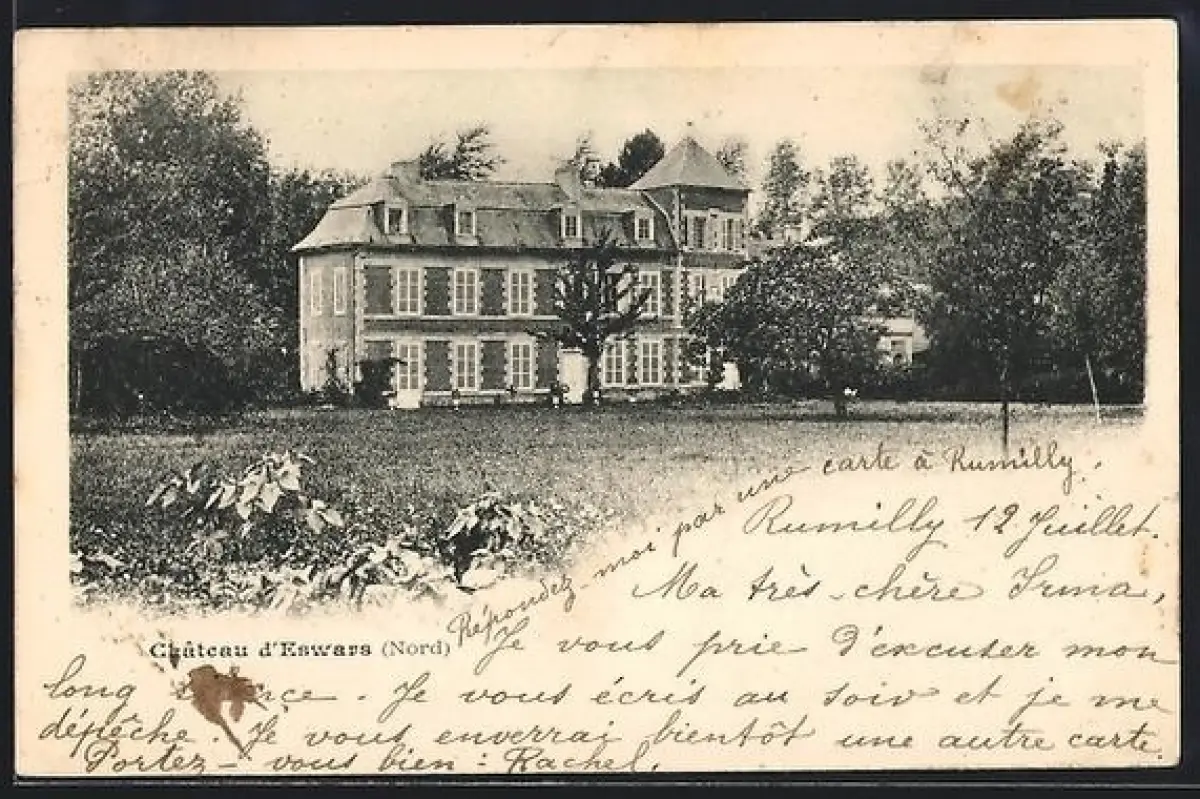 Répondez-moi par une carte à Rumilly.
Rumilly 12 Juillet.
Ma très-chère Irma,
Château d'Eswars (Nord)
Je vous prie d'excuser mon
long . Je vous écris au soir et je me
dépêche. Je vous enverrai bientôt une autre carte.
Portez-vous bien : Rachel.